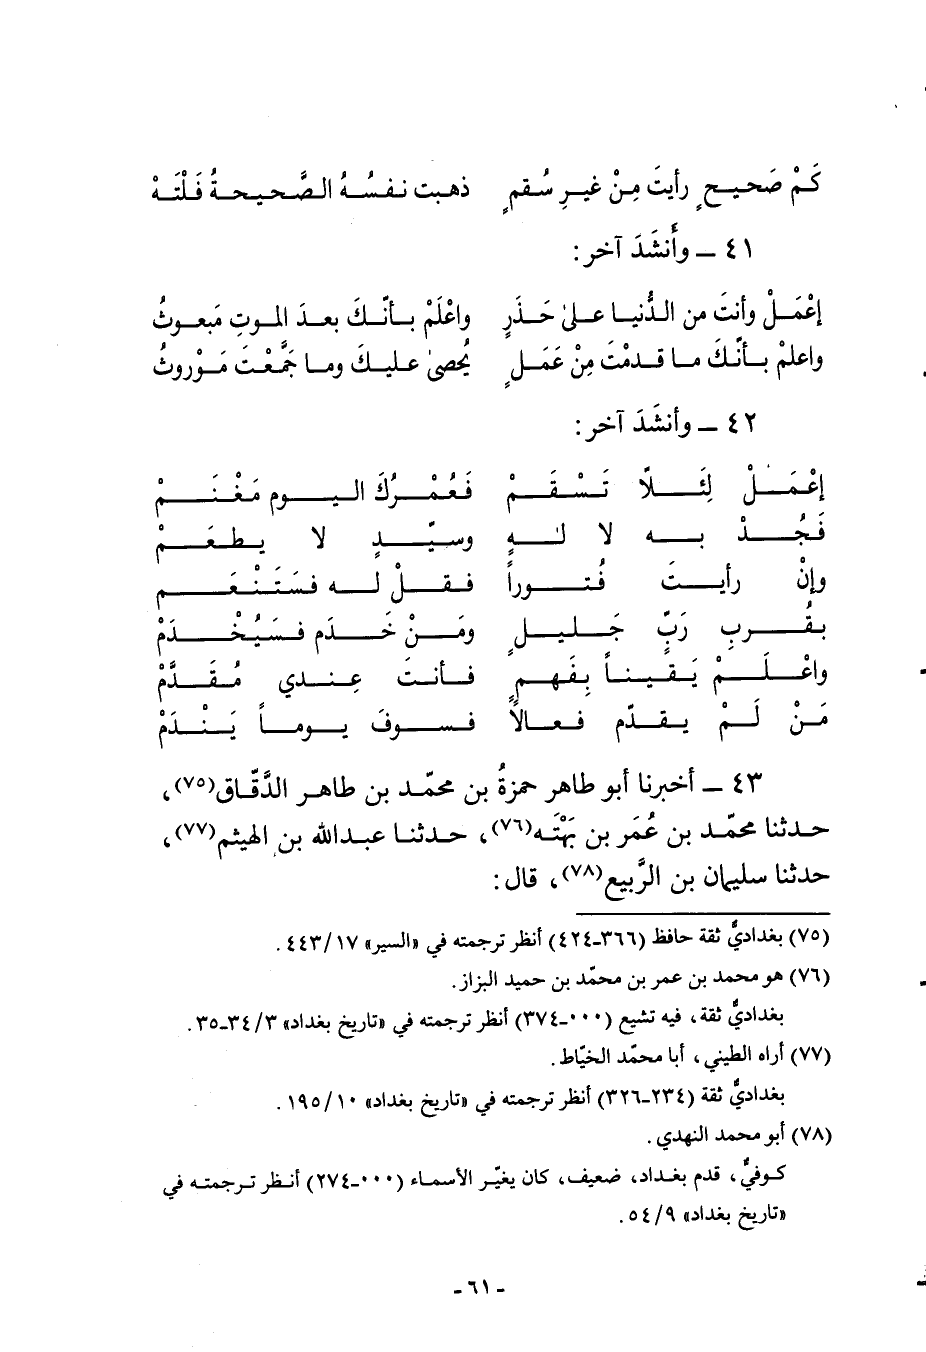 كَمْ صَحيحٍ رأيتَ مِنْ غيرِ سُقمٍ ذهبت نفسُهُ الصَّحيحةُ فَلْتَهْ
٤١ ـ وأَنشَدَ آخر:
إعْمَلْ وأنتَ من الدُّنيا على حَذَرٍ واعْلَمْ بأنّكَ بعدَ الموتِ مَبعوثُ
واعلمْ بأنّكَ ما قدمْتَ مِنْ عَمَلٍ يُحصىٰ عليكَ وما جَمَّعْتَ مَوْروثُ
٤٢ ـ وأنشَدَ آخر:
إعْمَلْ لِئَلاَّ تَسْقَمْ فَعُمْرُكَ اليوم مَغْنَمْ
فَجُدْ به لا لهٍ وسيّدٍ لا يطعَمْ
وإنْ رأيتَ فُتوراً فقلْ له فسَتَنْعَم
بقُربِ رَبٍّ جَليلٍ ومَنْ خَدَم فسَيُخْدَمْ
واعْلَمْ يَقيناً بِفَهمٍ فأنتَ عِندي مُقَدَّمْ
مَنْ لَمْ يقدّم فعالاً فسوفَ يوماً يَنْدَمْ
٤٣ ـ أخبرنا أبو طاهر حمزةُ بن محمّد بن طاهر الدَّقّاق(٧٥)،
حدثنا محمّد بن عُمَر بن بَهْتَه(٧٦)، حدثنا عبدالله بن الهيثم(٧٧)،
حدثنا سليمان بن الرَّبيع(٧٨)، قال:
(٧٥) بغداديٌّ ثقة حافظ (٣٦٦ـ٤٢٤) أنظر ترجمته في «السير» ٤٤٣/١٧.
(٧٦) هو محمد بن عمر بن محمّد بن حميد البزاز.
بغداديٌّ ثقة، فيه تشيع (٠٠٠ـ٣٧٤) أنظر ترجمته في «تاريخ بغداد» ٣٤/٣ـ٣٥.
(٧٧) أراه الطيني، أبا محمّد الخيّاط.
بغداديٌّ ثقة (٢٣٤ـ٣٢٦) أنظر ترجمته في «تاريخ بغداد» ١٩٥/١٠.
(٧٨) أبو محمد النهدي.
كوفيٌّ، قدم بغداد، ضعيف، كان يغيّر الأسماء (٠٠٠ـ٢٧٤) أنظر ترجمته في
«تاريخ بغداد» ٥٤/٩.
- ٦١ -